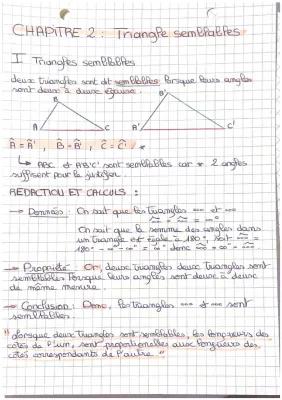 CHAPITRE 2 : Triangle semblables
I Triangles semblables
deux triangles sont dit semblables lorsque leurs angles
sont deux à deux égaux.
B B'
A C A' C'
Â = Â' , B̂ = B̂' , Ĉ = Ĉ' *
↳ ABC et A'B'C' sont semblables car * 2 angles
suffisent pour le justifier.
REDACTION ET CALCULS :
→ Données : On sait que les triangles --- et ---
= ; =
On sait que la somme des angles dans
un triangle est égale à 180°, soit =
180° - = donc =
→ Propriété : Or, deux triangles deux triangles sont
semblables lorsque leurs angles sont deux à deux
de même mesure.
→ Conclusion : Donc, les triangles --- et --- sont
semblables.
"Lorsque deux triangles sont semblables, les longueurs des
côtés de l'un, sont proportionnelles aux longueurs des
côtés correspondants de l'autre."